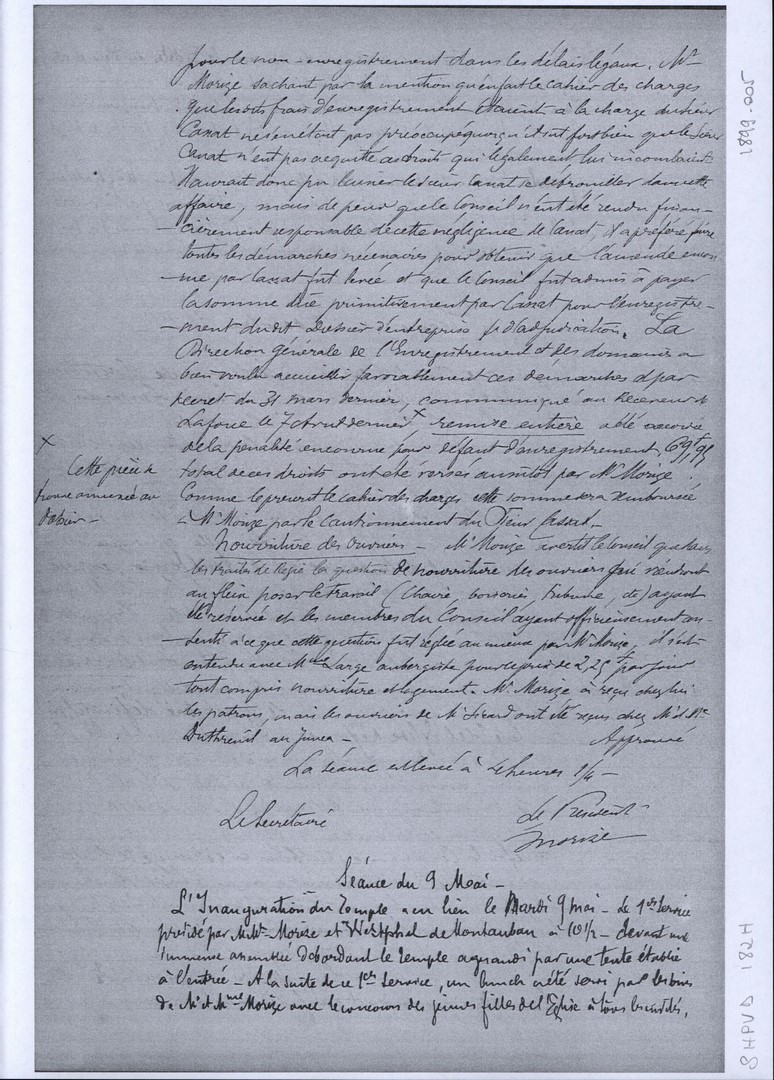 pour le non-enregistrement dans les délais légaux. Mr
Morize sachant par la mention qu'en fait le cahier des charges
que les dits frais d'enregistrement étaient à la charge du sieur
Cassat ne s'en étant pas préoccupé il fort bien que le sieur
Cassat n'eut pas acquitté droits qui légalement lui incombaient
Il aurait donc pu laisser le sieur Cassat se débrouiller dans cette
affaire, mais de peur que le Conseil n'ent été rendu finan-
-cièrement responsable de cette négligence de Cassat, il a préféré faire
toutes les démarches nécessaires pour obtenir que l'amende encou
-rue par Cassat fut levée et que le Conseil fut admis à payer
la somme due primitivement par Cassat pour l'enregistre-
-ment du dit Dossier d'entreprise & d'adjudication. La
Direction générale de l'Enregistrement et des domaines a
bien voulu accueillir favorablement ces démarches & par
décret du 31 mars dernier, communiqué au Receveur de
Laforce le 7 Avril dernier x remise entière a été
de la pénalité encourue pour défaut d'enregistrement, 69f95
total de ces droits ont été versés aussitôt par Mr Morize.
Comme le prévoit le cahier des charges cette somme sera remboursée
à Mr Morize par le Cautionnement du Sieur Cassat -
x
Cette pièce se
trouve annexée au
dossier -
Nourriture des ouvriers - Mr Morize avertit le Conseil que dans
les traités de Régie la question de nourriture des ouvriers qui viendront
au Fleix poser le travail (Chaire, boiseries, tribune, etc) ayant
été réservée et les membres du Conseil ayant officieusement con-
-senti à ce que cette question fut réglée au mieux par Mr Morize, il s'est
entendu avec Mme Large aubergiste pour le prix de 2,25f par jour
tout compris nourriture et logement. Mr Morize a reçu chez lui
les patrons, mais les ouvriers de Mr Sicard ont été reçus chez Mr
Duthreuil au - Approuvé
La séance est levée à 4 heures 1/4 -
Le Secrétaire
Le Président
Morize
Séance du 9 Mai -
L'Inauguration du Temple a eu lieu le Mardi 9 mai - Le 1er Service
présidé par MMrs Morize et Westphal de Montauban à 10 1/2 - devant une
immense assemblée débordant le Temple agrandi par une tente établie
à l'entrée - A la suite de ce 1er Service, un lunch a été servi par les soins
de Mr et Mme Morize avec le concours des jeunes filles de l'Eglise à tous les invités.
1899.005
SHPVD 182H